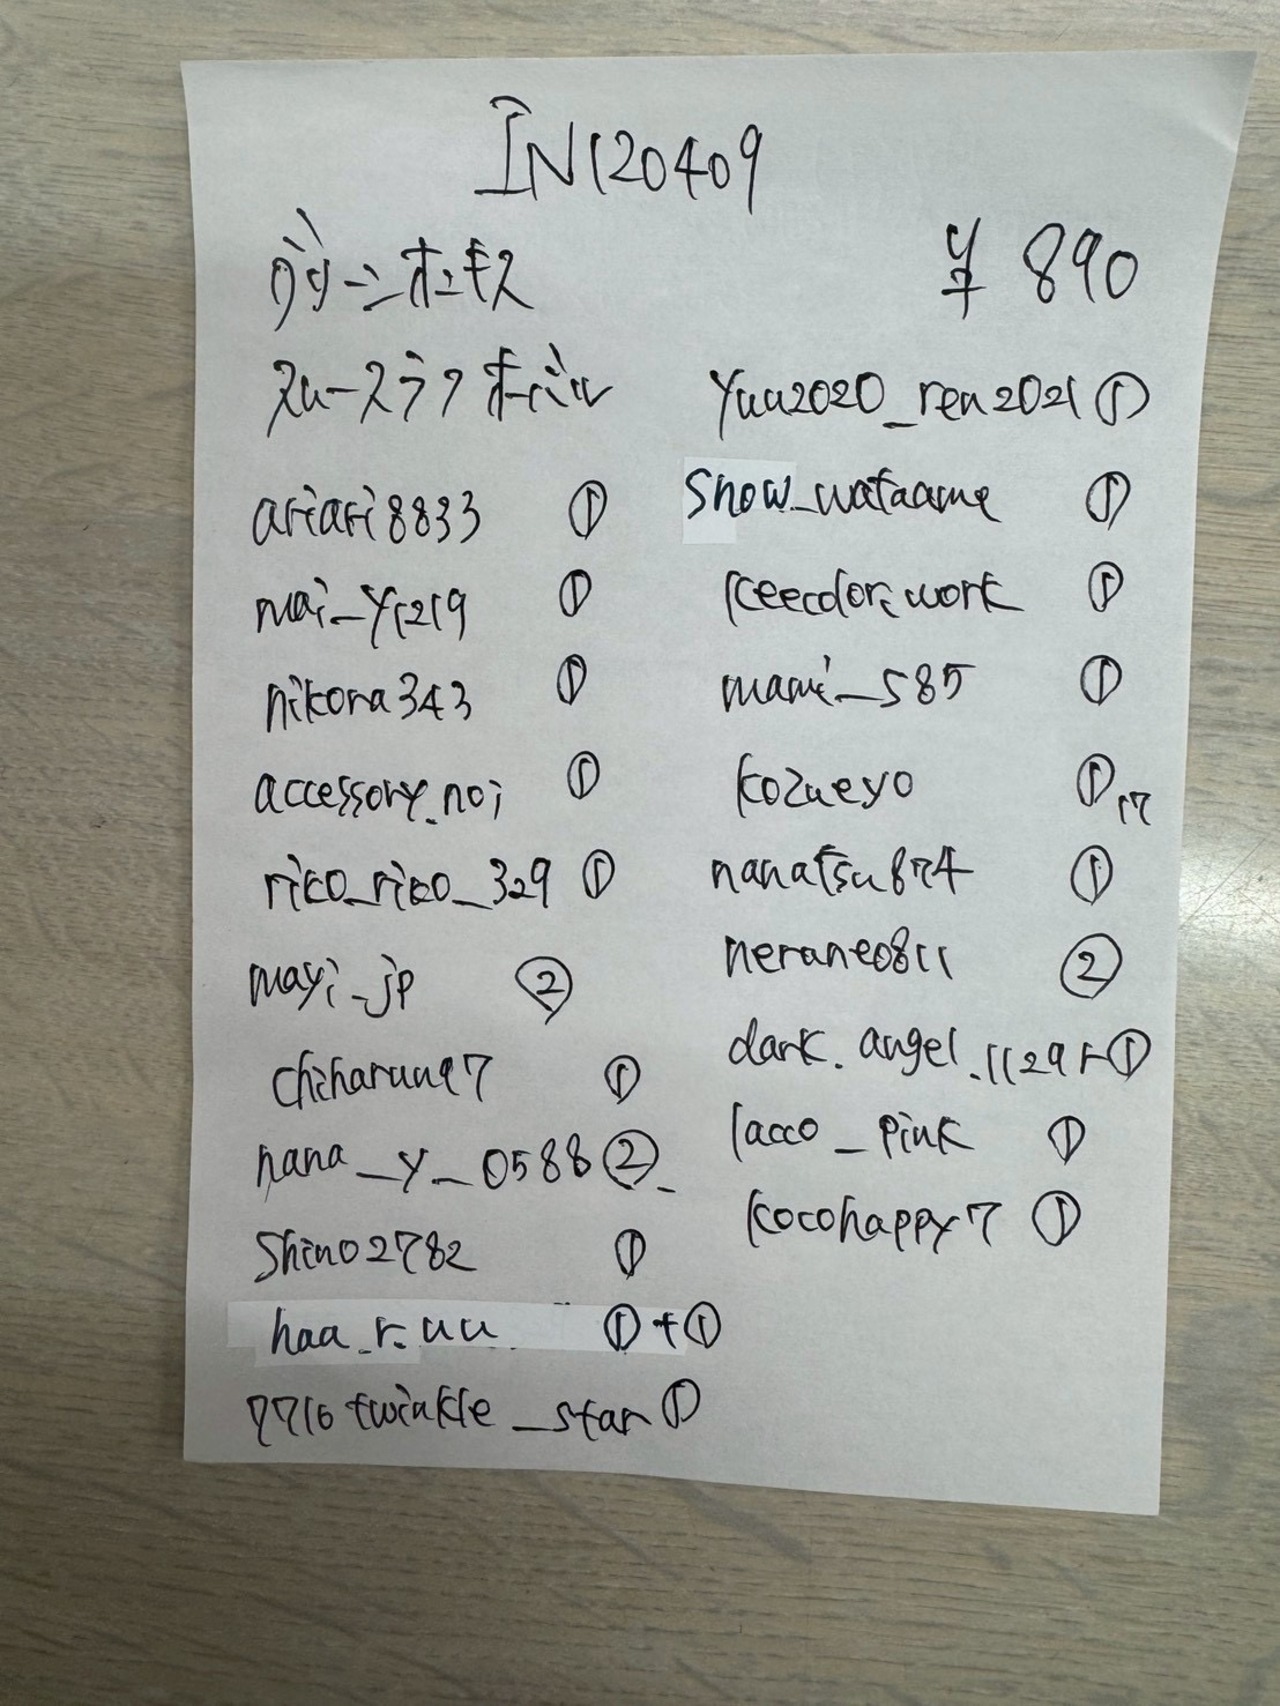 IN120409
グリーンオニキス
¥ 890
スムースラフオーバル
ariari8833 ①
mai_y1219 ①
nikora343 ①
accessory_noi ①
riko_riko_329 ①
mayi_jp ②
chiharuu97 ①
nana_y_0588 ②
Shino2782 ①
haa_r.uu ①+①
7716twinkle_star ①
yuu2020_ren2021 ①
Snow_wataame ①
keecolor.work ①
mami_585 ①
kozueyo ① 17
nanatsu874 ①
neraneo811 ②
dark.angel.1129r ①
lacco_pink ①
kocohappy7 ①